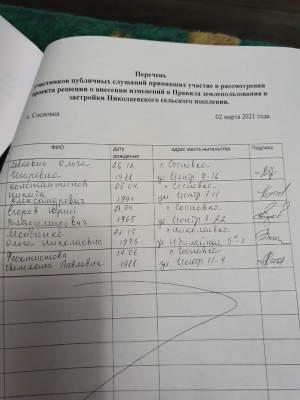 Перечень
участников публичных слушаний принявших участие в рассмотрении
проекта решения о внесении изменений в Правила землепользования и
застройки Николаевского сельского поселения.
с. Сосновка 02 марта 2021 года
ФИО дата рождения адрес места жительства Подпись
Ольга 26.12. с. Сосновка
Игоревна 1988 ул. Центр 9-16
Константинов 05.04. с. Сосновка
Никита Александрович 1991 ул Центр 7-11
Егоров Юрий 21.04 с. Сосновка
Владимирович 1965 ул. Центр 1-22
22.10 с. Николаевка
Ольга Николаевна 1973 ул Юбилейная, 5 -1
Феоктистова 14.06 с. Сосновка
Светлана Павловна 1988 ул. Центр 11-4